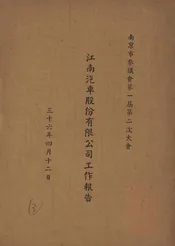 南京市參議會第一屆第二次大會
江南汽車股份有限公司工作報告
三十六年四月十二日